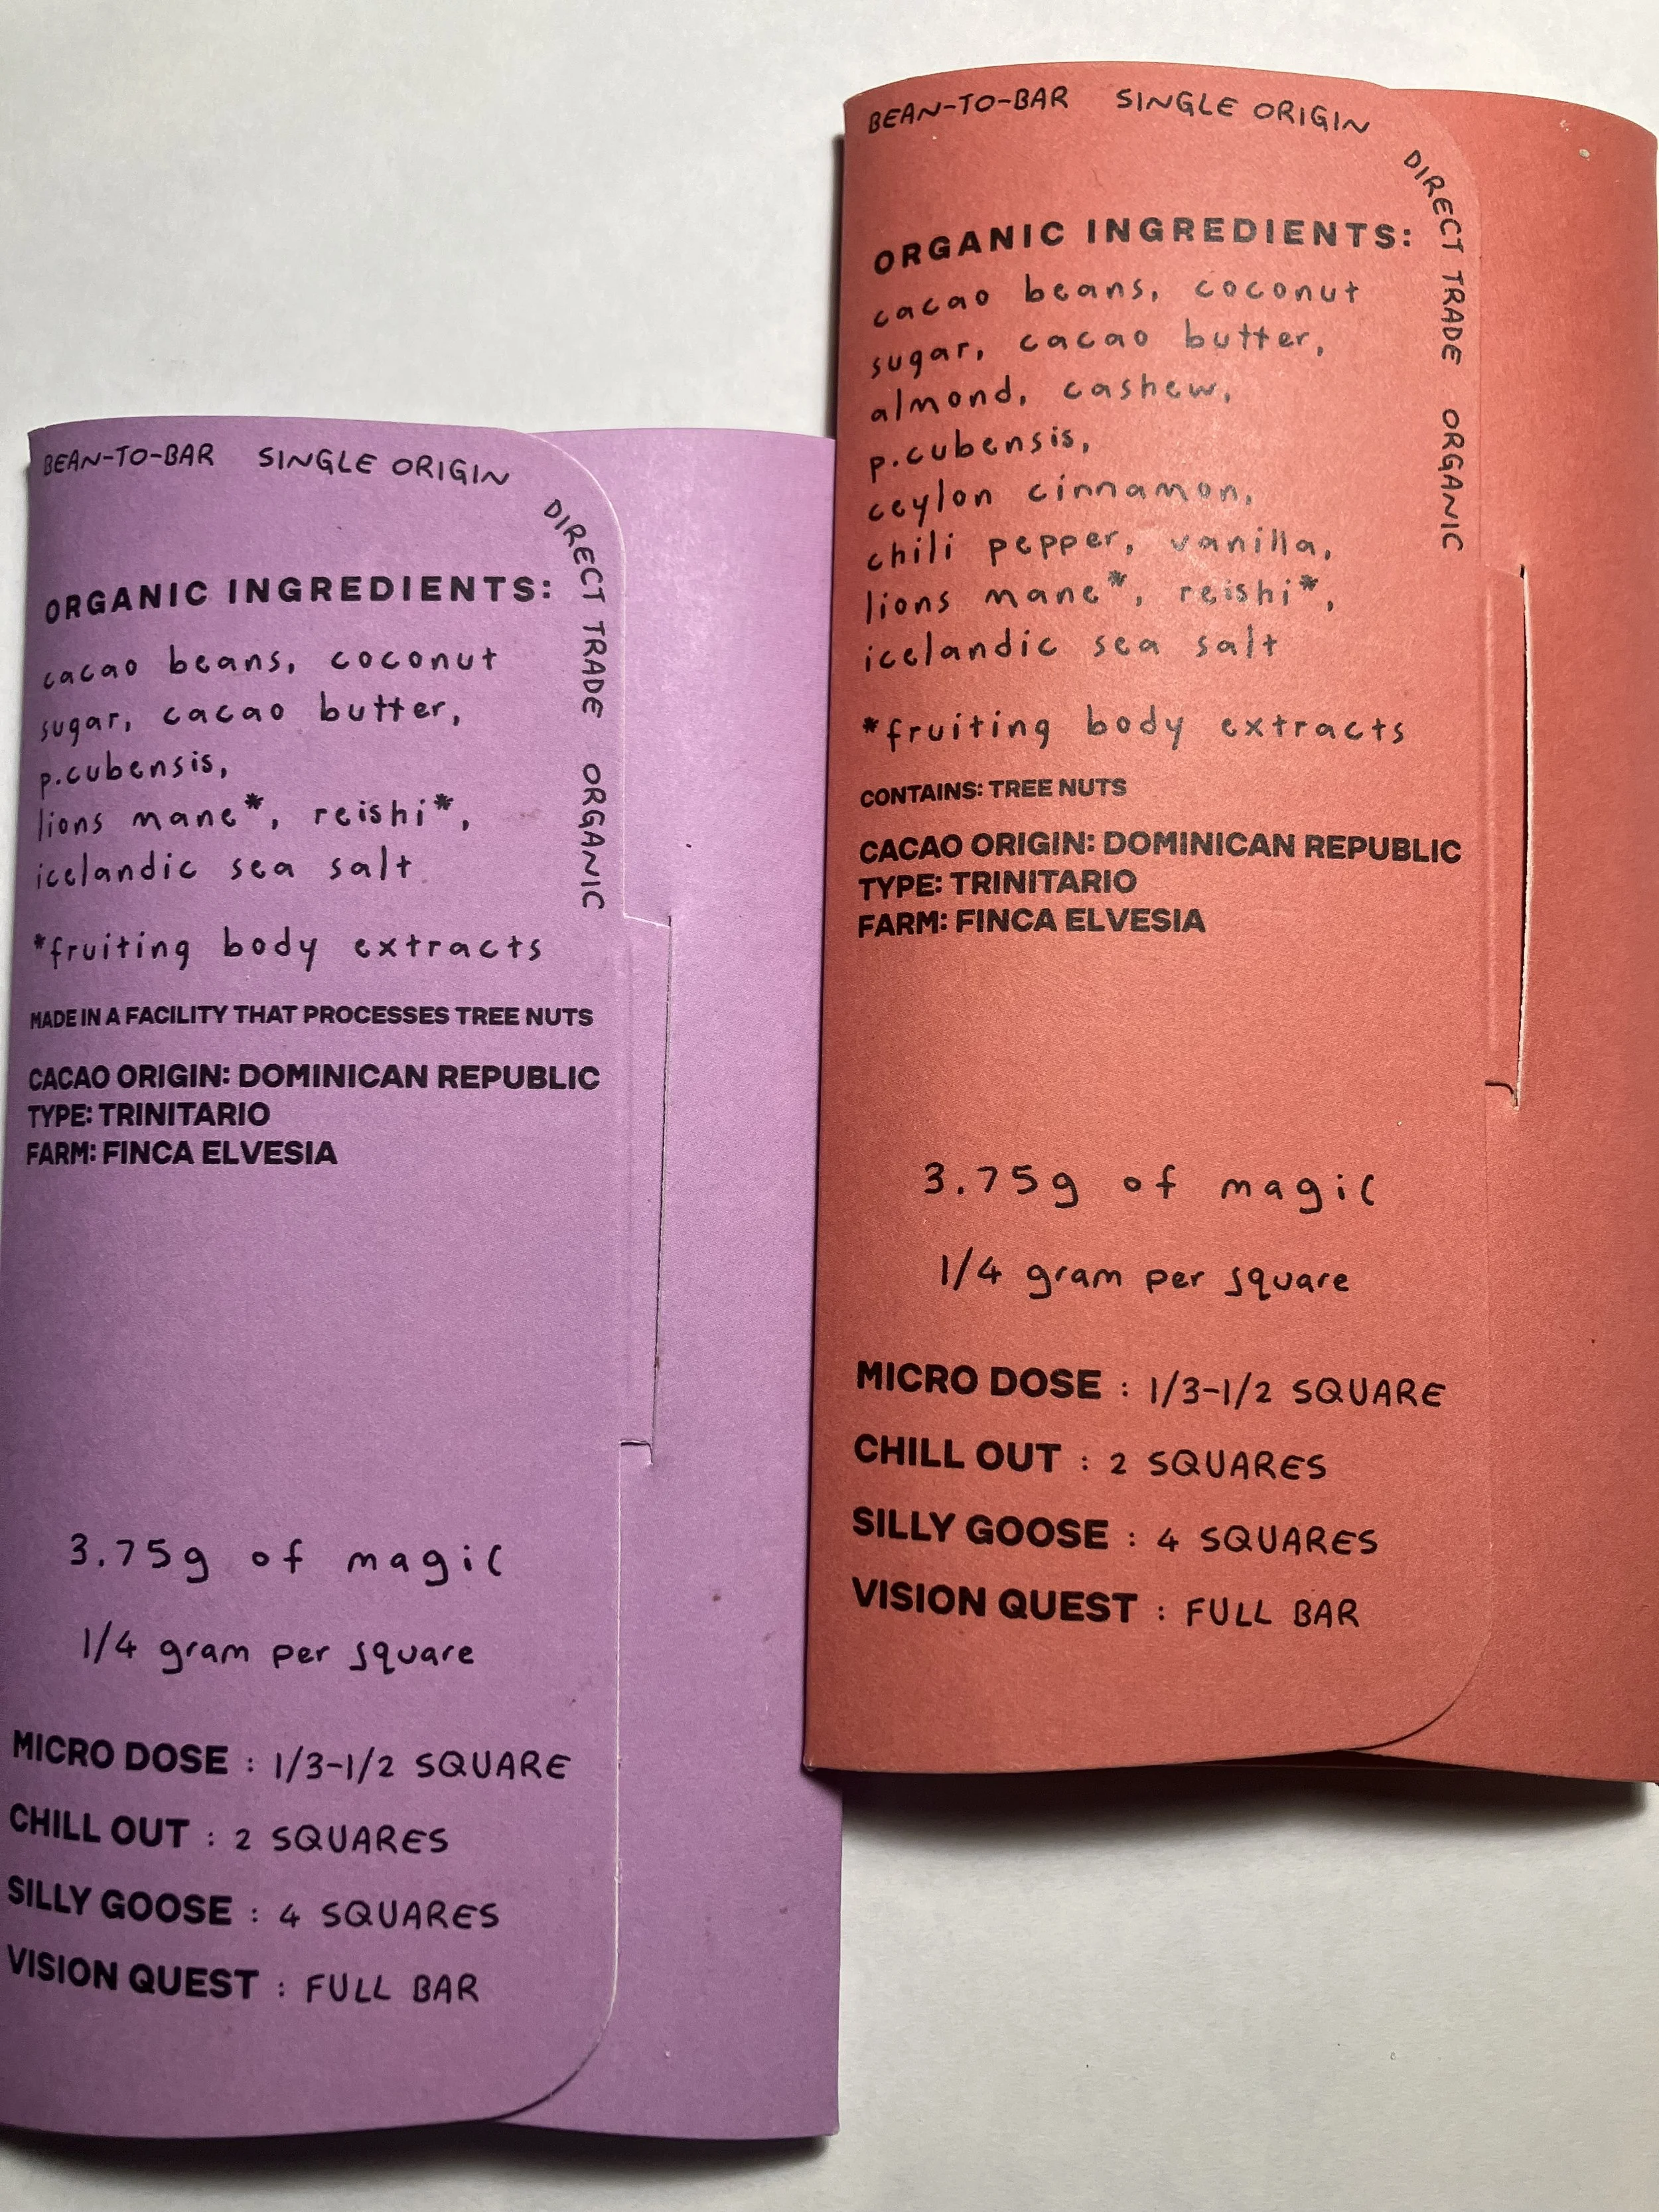 BEAN-TO-BAR SINGLE ORIGIN
DIRECT TRADE ORGANIC
ORGANIC INGREDIENTS:
cacao beans, coconut
sugar, cacao butter,
p.cubensis,
lions mane*, reishi*,
icelandic sea salt
*fruiting body extracts
MADE IN A FACILITY THAT PROCESSES TREE NUTS
CACAO ORIGIN: DOMINICAN REPUBLIC
TYPE: TRINITARIO
FARM: FINCA ELVESIA
3.75g of magic
1/4 gram per square
MICRO DOSE : 1/3-1/2 SQUARE
CHILL OUT : 2 SQUARES
SILLY GOOSE : 4 SQUARES
VISION QUEST : FULL BAR
BEAN-TO-BAR SINGLE ORIGIN
DIRECT TRADE ORGANIC
ORGANIC INGREDIENTS:
cacao beans, coconut
sugar, cacao butter,
almond, cashew,
p.cubensis,
ceylon cinnamon,
chili pepper, vanilla,
lions mane*, reishi*,
icelandic sea salt
*fruiting body extracts
CONTAINS: TREE NUTS
CACAO ORIGIN: DOMINICAN REPUBLIC
TYPE: TRINITARIO
FARM: FINCA ELVESIA
3.75g of magic
1/4 gram per square
MICRO DOSE : 1/3-1/2 SQUARE
CHILL OUT : 2 SQUARES
SILLY GOOSE : 4 SQUARES
VISION QUEST : FULL BAR